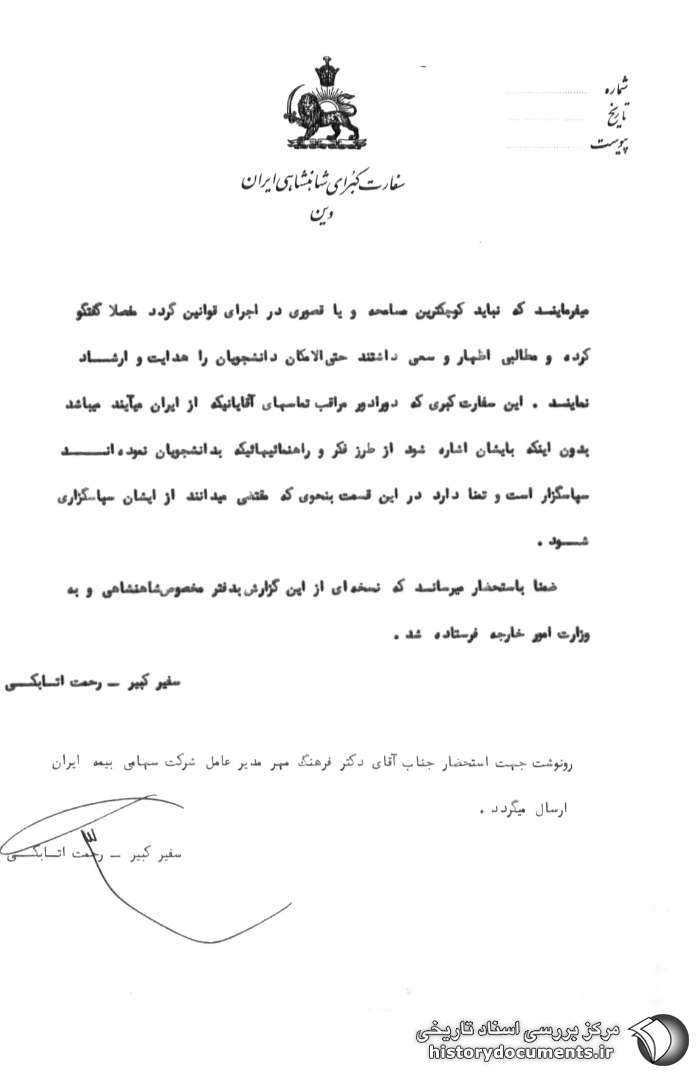 شماره
تاریخ
پیوست
سفارت کبرای شاهنشاهی ایران
وین
میفرمایند که نباید کوچکترین مسامحه و یا قصوری در اجرای قوانین گردد مفصلا گفتگو
کرده و مطالبی اظهار و سعی داشتند حتی الامکان دانشجویان را هدایت و ارشاد
نمایند . این سفارت کبری که دورادور مراقب تماسهای آقایانیکه از ایران میآیند میباشد
بدون اینکه بایشان اشاره شود از طرز فکر و راهنمائیهائیکه بدانشجویان نموده اند
سپاسگزار است و تمنا دارد در این قسمت بنحوی که مقتضی میدانند از ایشان سپاسگزاری
شود .
ضمنا باستحضار میرساند که نسخه ای از این گزارش بدفتر مخصوص شاهنشاهی و به
وزارت امور خارجه فرستاده شد .
سفیر کبیر ـ رحمت اتابکی
رونوشت جهت استحضار جناب آقای دکتر فرهنگ مهر مدیر عامل شرکت سهامی بیمه ایران
ارسال میگردد .
سفیر کبیر ـ رحمت اتابکی
مرکز بررسی اسناد تاریخی
historydocuments.ir